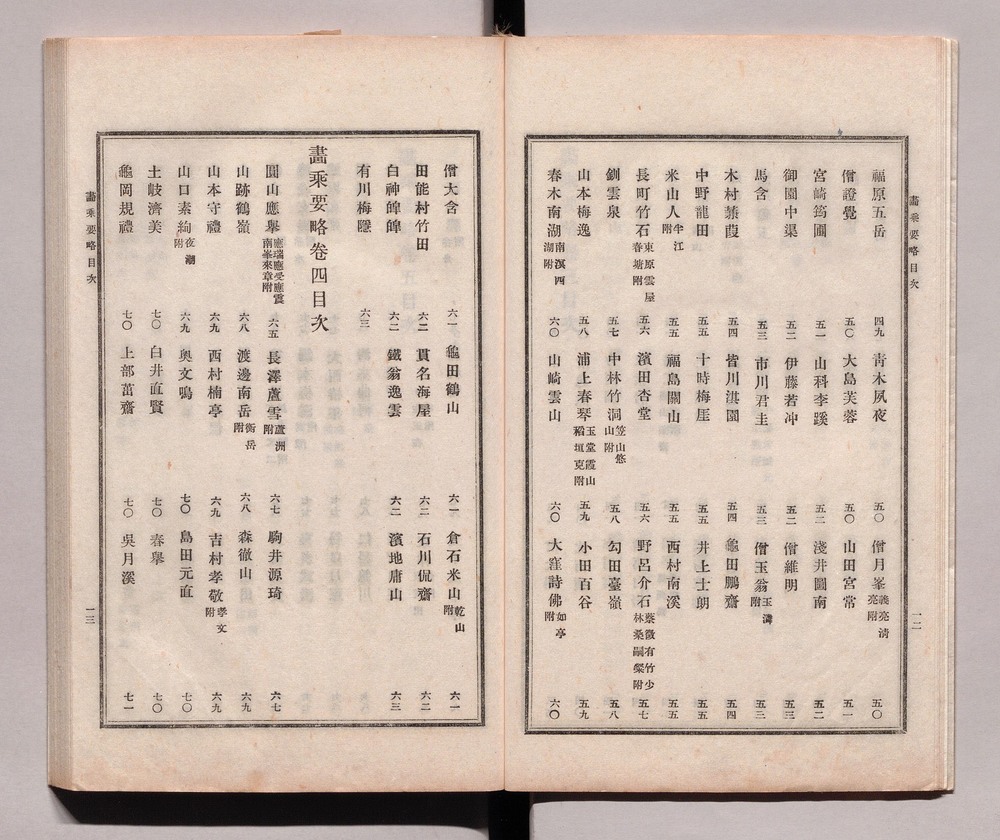 畫乘要略目次
福原五岳 四九 靑木夙夜 五〇 僧月峯 義亮淸亮附 五〇
僧證覺 五〇 大島芙蓉 五〇 山田宮常 五一
宮崎筠圃 五一 山科李蹊 五二 淺井圖南 五二
御園中渠 五二 伊藤若冲 五二 僧維明 五三
馬含 五三 市川君圭 五三 僧玉翁 玉潾附 五三
木村蒹葭 五四 皆川淇園 五四 龜田鵬齋 五四
中野龍田 五五 十時梅厓 五五 井上士朗 五五
米山人 半江附 五五 福島關山 五五 西村南溪 五五
長町竹石 東原雲屋春塘附 五六 濱田杏堂 五六 野呂介石 蔡徵有竹少林桑嗣粲附 五七
釧雲泉 五七 中林竹洞 笠山悠山附 五八 勾田臺嶺 五八
山本梅逸 五八 浦上春琴 玉堂霞山稻垣克附 五九 小田百谷 五九
春木南湖 南溟西湖附 六〇 山崎雲山 六〇 大窪詩佛 如亭附 六〇
一二
僧大含 六一 龜田鶴山 六一 倉石米山 乾山附 六一
田能村竹田 六二 貫名海屋 六二 石川侃齋 六二
白神皥皥 六二 鐵翁逸雲 六二 濱地庸山 六三
有川梅隱 六三
畫乘要略卷四目次
圓山應擧 應瑞應受應震南峯來章附 六五 長澤蘆雪 蘆洲附 六七 駒井源琦 六七
山跡鶴嶺 六八 渡邊南岳 衡岳附 六八 森徹山 六九
山本守禮 六九 西村楠亭 六九 吉村孝敬 孝文附 六九
山口素絢 夜潮附 六九 奧文鳴 七〇 島田元直 七〇
土岐濟美 七〇 白井直賢 七〇 春擧 七〇
龜岡規禮 七〇 上部茁齋 七〇 吳月溪 七一
畫乘要略目次
一三